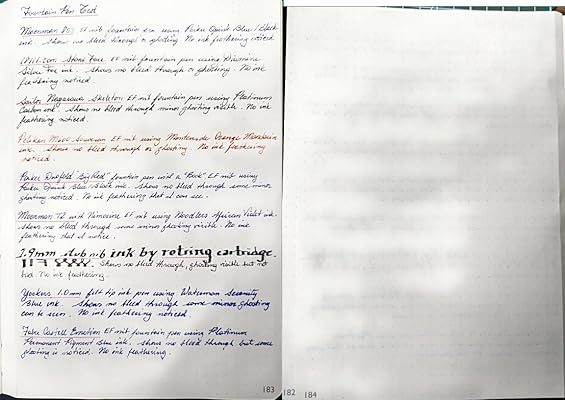 Fountain Pen Test
Moonman EF nib fountain pen using Parker Quink Blue/Black
ink. Shows no bleed through or ghosting. No ink feathering noticed.
Stone Face EF nib fountain pen using
Silver Fox ink. Shows no bleed through or ghosting. No ink
feathering noticed.
Sailor Skeleton EF nib fountain pen using Platinum
Carbon ink. Shows no bleed through minor ghosting visible. No ink
feathering noticed.
Pelikan Souveran EF nib using Monteverde Orange Mandarin
ink. Shows no bleed through or ghosting. No ink feathering
noticed.
Parker Duofold "Big Red" fountain pen with a EF nib using
Parker Quink Blue/Black ink. Shows no bleed through some minor
ghosting visible. No ink feathering that I can see.
Moonman T2 with EF nib using Noodlers African Violet ink.
Shows no bleed through some minor ghosting visible. No ink
feathering that I notice.
1.9mm stub nib ink by rotring cartridge.
Shows no bleed through, ghosting visible but not
bad. No ink feathering.
Yookers 1.0mm felt tip ink pen using Waterman Serenity
Blue ink. Shows no bleed through some minor ghosting
can be seen. No ink feathering noticed.
Faber Castell Emotion EF nib fountain pen using Platinum
Permanent Pigment Blue ink. Shows no bleed through but some
ghosting is noticed. No ink feathering.
183
182
184